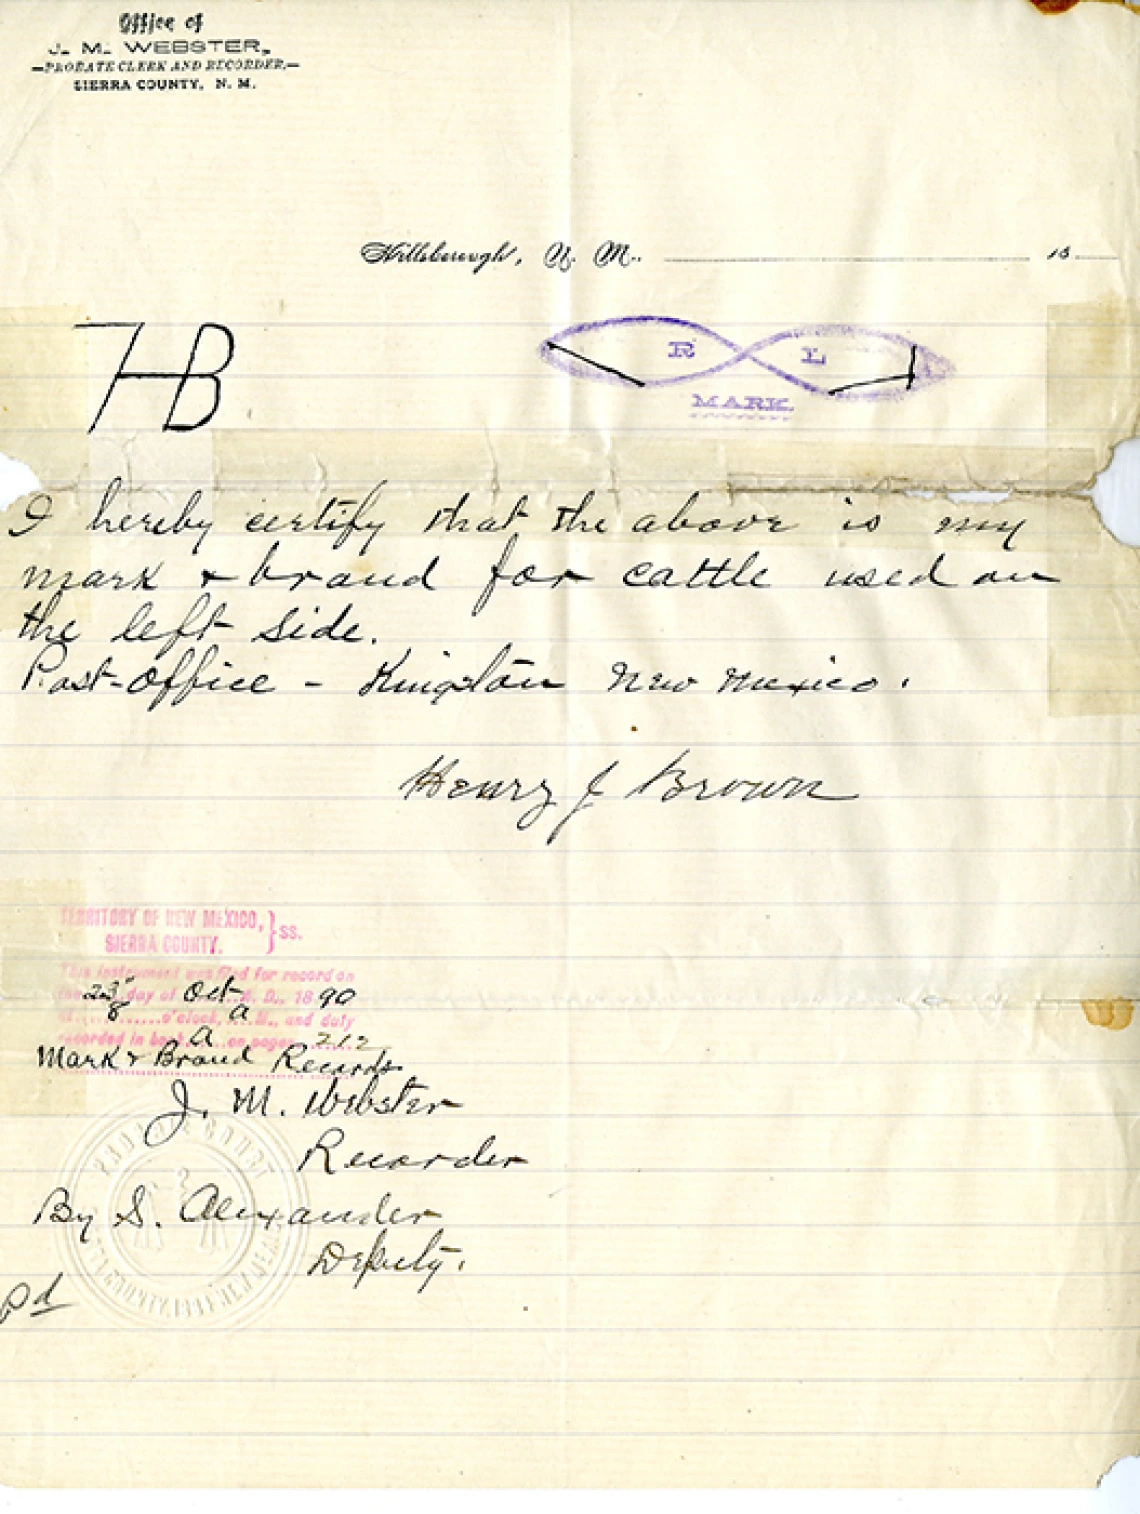 Office of
J. M. WEBSTER,
—PROBATE CLERK AND RECORDER,—
SIERRA COUNTY, N. M.
Hillsborough, N. M. 18
HB
R L
MARK.
I hereby certify that the above is my
mark & brand for cattle used on
the left side.
Post-Office - Kingston New Mexico.
Henry J Brown
TERRITORY OF NEW MEXICO, } SS.
SIERRA COUNTY.
This instrument was filed for record on
the 23" day of Oct A. D., 1890
at 8 o'clock, A M., and duly
recorded in book A on pages 212
Mark & Brand Records
J. M. Webster
Recorder
By S. Alexander
Deputy.
pd
PROBATE COURT